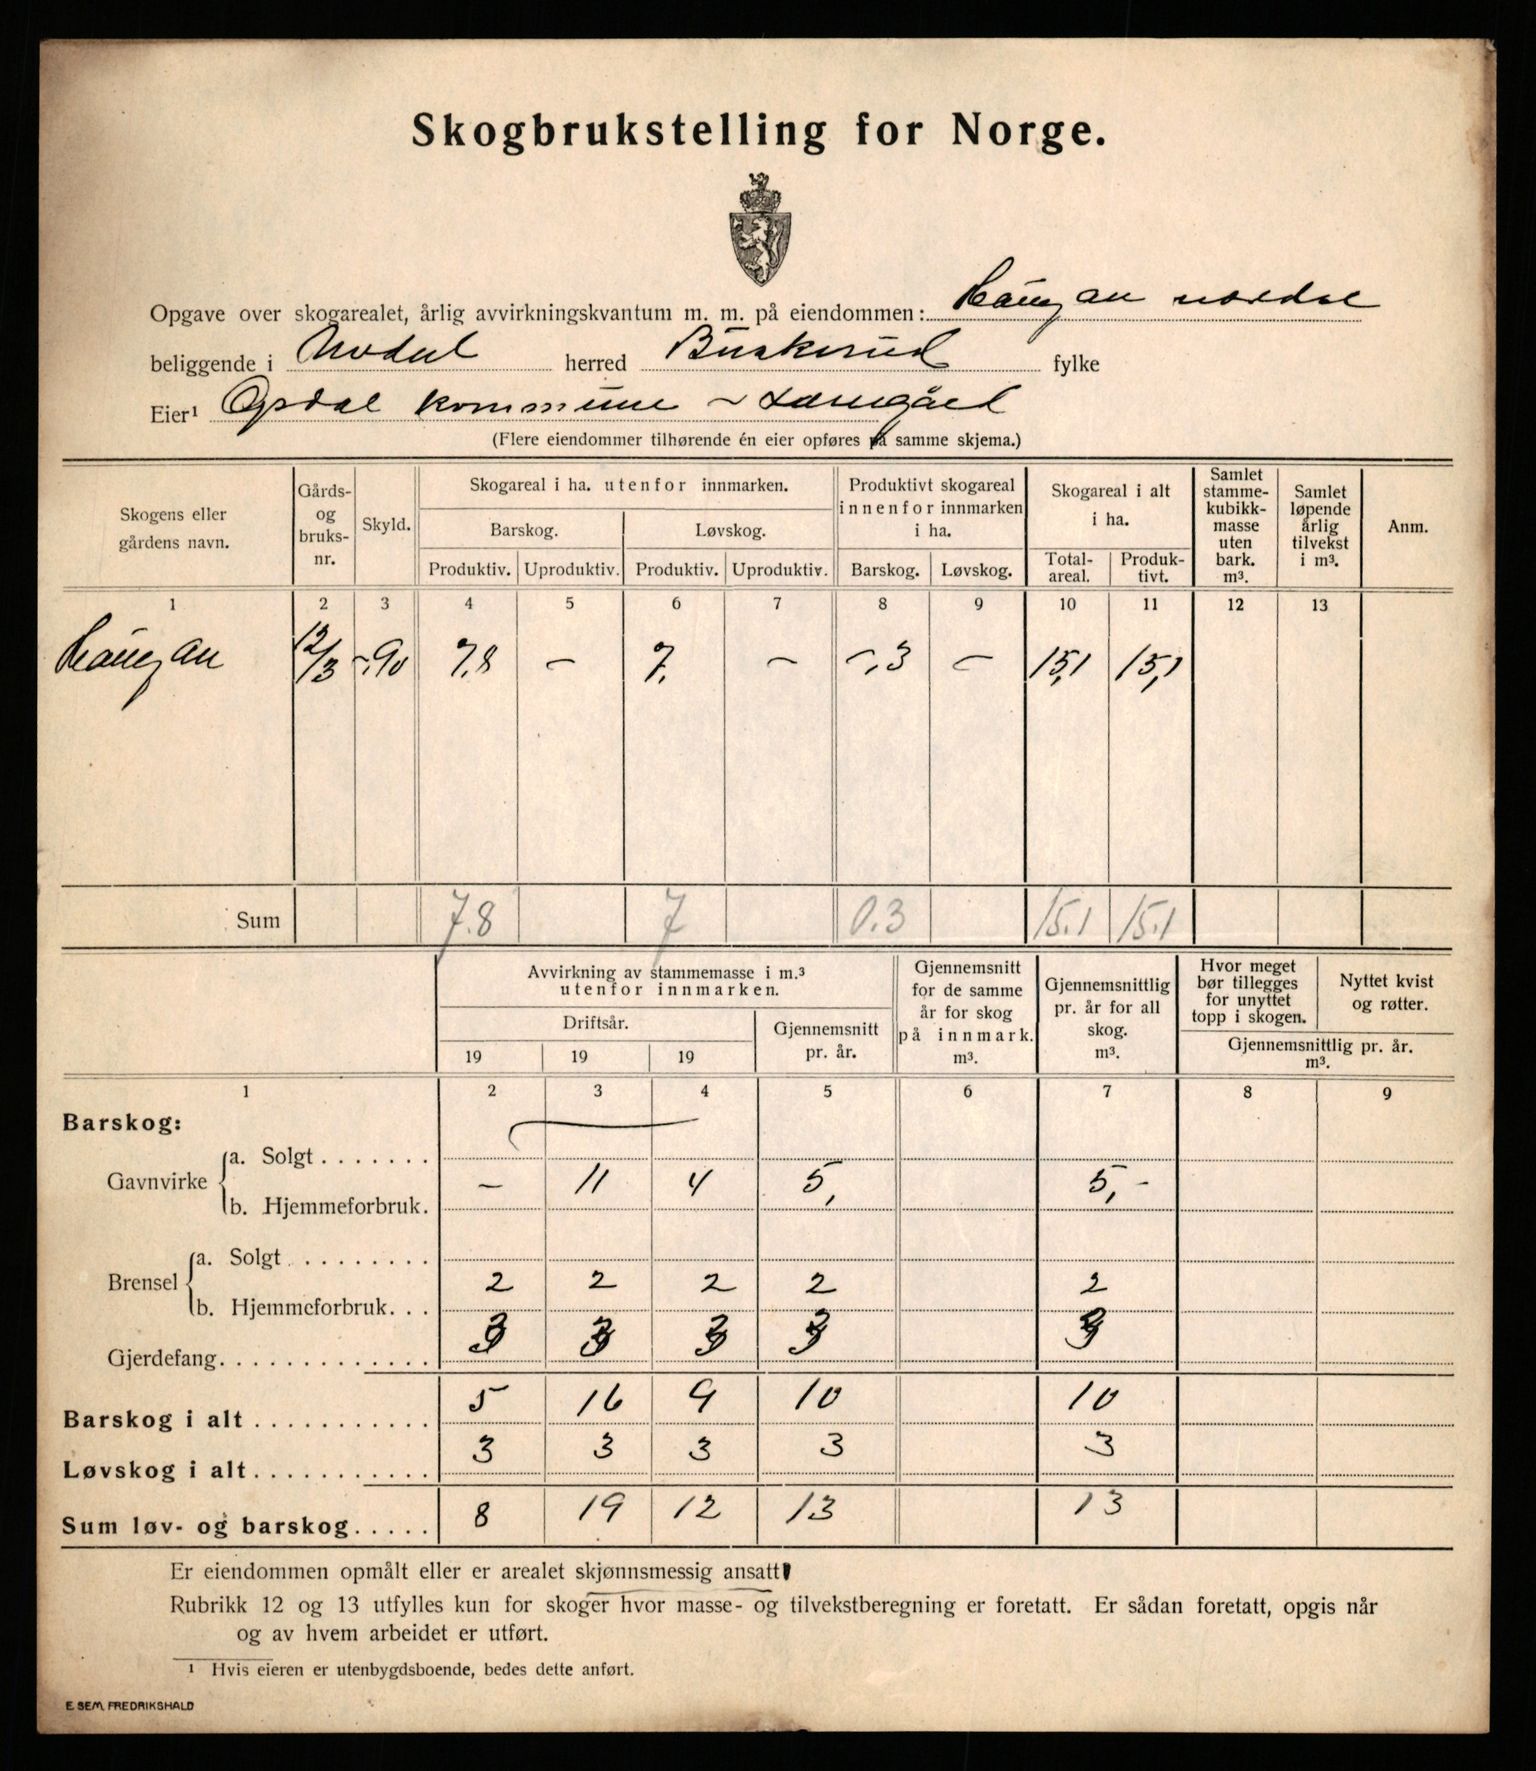 Skogbrukstelling for Norge.
Opgave over skogarealet, årlig avvirkningskvantum m. m. på eiendommen: Haugan nordre
beliggende i Uvdal herred Buskerud fylke
Eier¹ Opdal kommune
(Flere eiendommer tilhørende én eier opføres på samme skjema.)
Skogens eller gårdens navn. Gårds- og bruks- nr. Skyld. Skogareal i ha. utenfor innmarken. Produktivt skogareal innenfor innmarken i ha. Skogareal i alt i ha. Samlet stamme- kubikk- masse uten bark. m³. Samlet løpende årlig tilvekst i m³. Anm.
Barskog. Løvskog.
Produktiv. Uproduktiv. Produktiv. Uproduktiv. Barskog. Løvskog. Total- areal. Produk- tivt.
1 2 3 4 5 6 7 8 9 10 11 12 13
Haugan 12/3 -.90 7,8 – 7, – -.3 – 15,1 15,1
Sum 7.8 7 0.3 15.1 15.1
Avvirkning av stammemasse i m.³ utenfor innmarken. Gjennemsnitt for de samme år for skog på innmark. m³. Gjennemsnittlig pr. år for all skog. m³. Hvor meget bør tillegges for unyttet topp i skogen. Nyttet kvist og røtter.
Driftsår. Gjennemsnitt pr. år. Gjennemsnittlig pr. år. m³.
19 19 19
1 2 3 4 5 6 7 8 9
Barskog:
Gavnvirke
a. Solgt . . . . . . .
– 11 4 5, 5,-
b. Hjemmeforbruk.
Brensel
a. Solgt . . . . . . . .
2 2 2 2 2
b. Hjemmeforbruk. . .
Gjerdefang. . . . . . . . . . . . . 3 3 3 3 3
Barskog i alt . . . . . . . . . . . 5 16 9 10 10
Løvskog i alt. . . . . . . . . . . 3 3 3 3 3
Sum løv- og barskog. . . . . 8 19 12 13 13
Er eiendommen opmålt eller er arealet skjønnsmessig ansatt
Rubrikk 12 og 13 utfylles kun for skoger hvor masse- og tilvekstberegning er foretatt. Er sådan foretatt, opgis når
og av hvem arbeidet er utført.
¹ Hvis eieren er utenbygdsboende, bedes dette anført.
E. SEM, FREDRIKSHALD